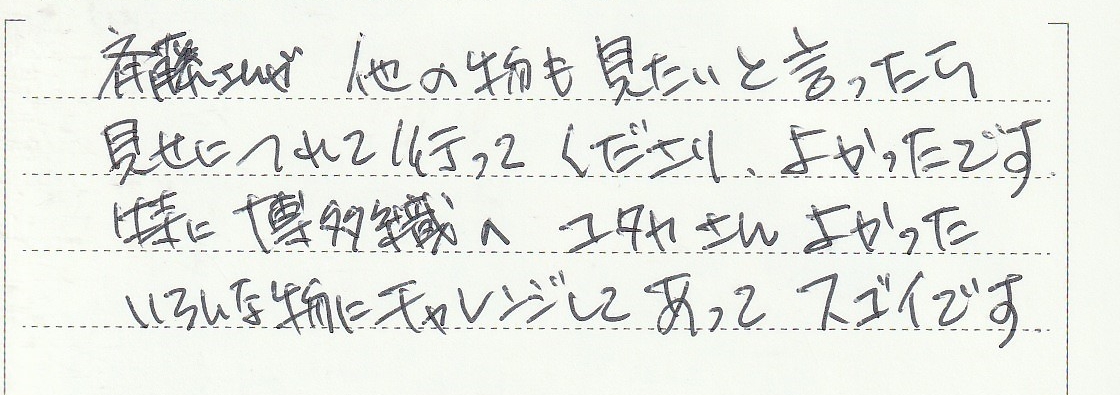 斉藤さんが 他の物も見たいと言ったら
見せにつれて行ってくださり、よかったです。
特に博多織へ ユタカさん よかった
いろんな物にチャレンジしてあって スゴイです.